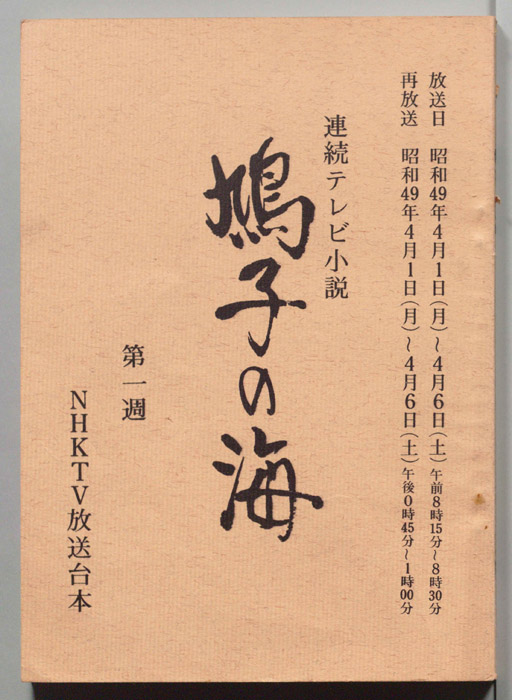 放送日　昭和49年4月1日（月）～4月6日（土）午前8時15分～8時30分
再放送　昭和49年4月1日（月）～4月6日（土）午後0時45分～1時00分
連続テレビ小説
鳩子の海
第一週
NHKTV放送台本